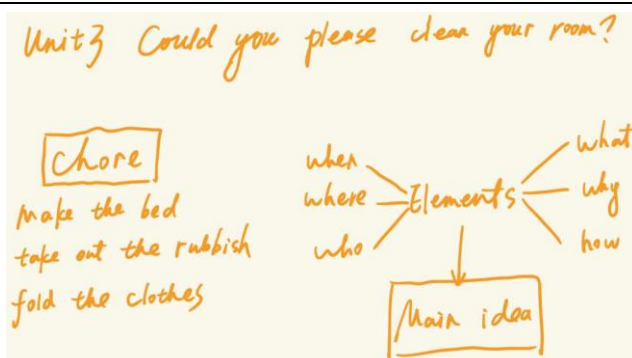 Unit3 Could you please clean your room?
Chore
make the bed
take out the rubbish
fold the clothes
when
where
who
Elements
what
why
how
Main idea